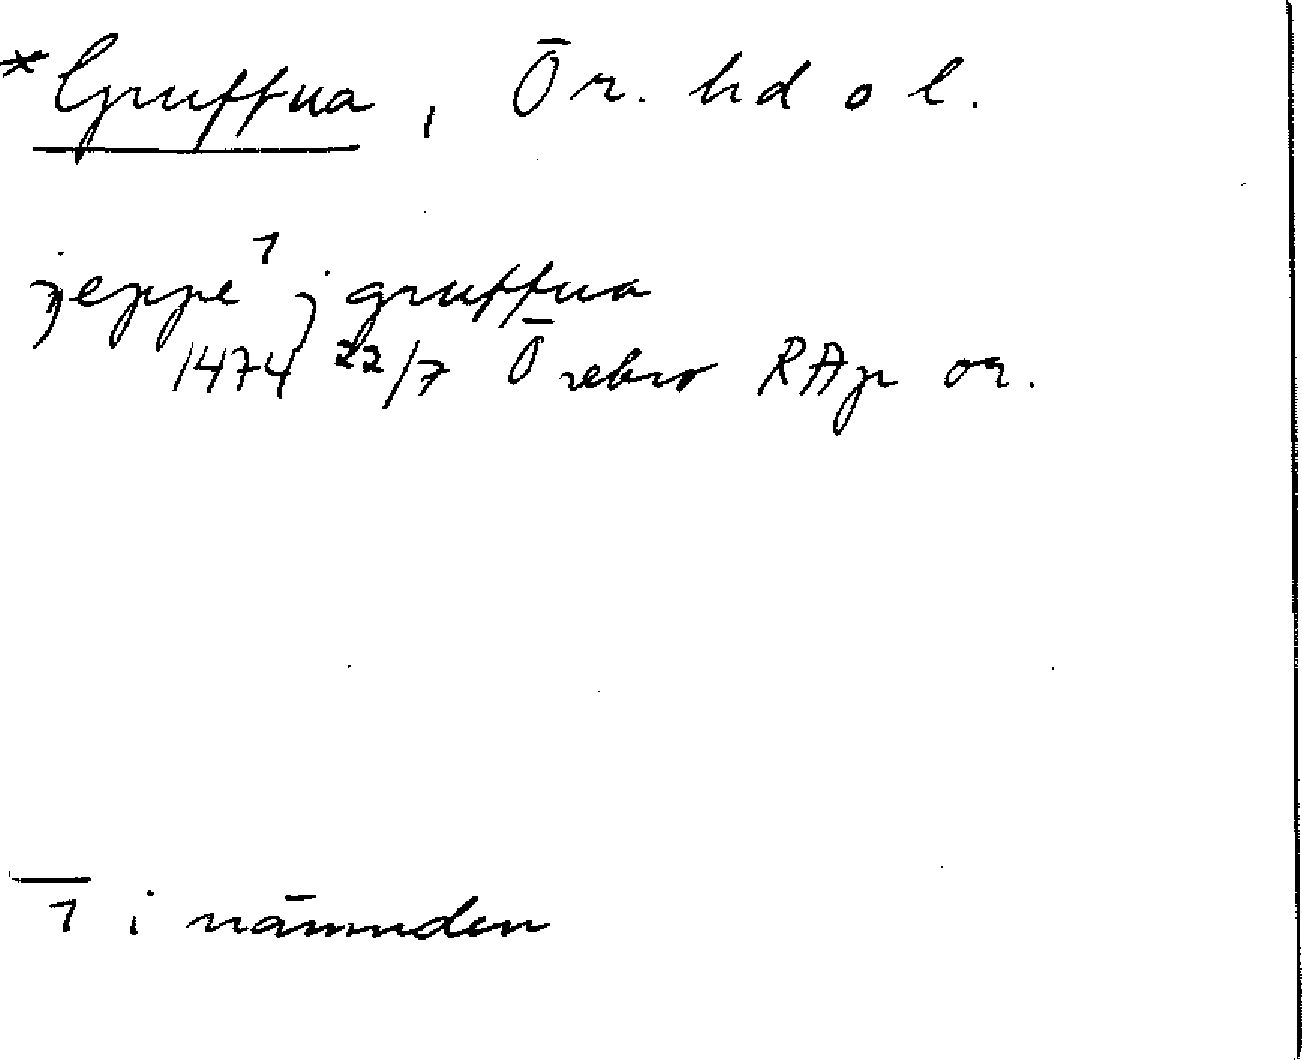 *Gruffua, Ör. hd o l.
jeppe¹ j gruffua
1474 22/7 Örebro RAp or.
1 i nämnden